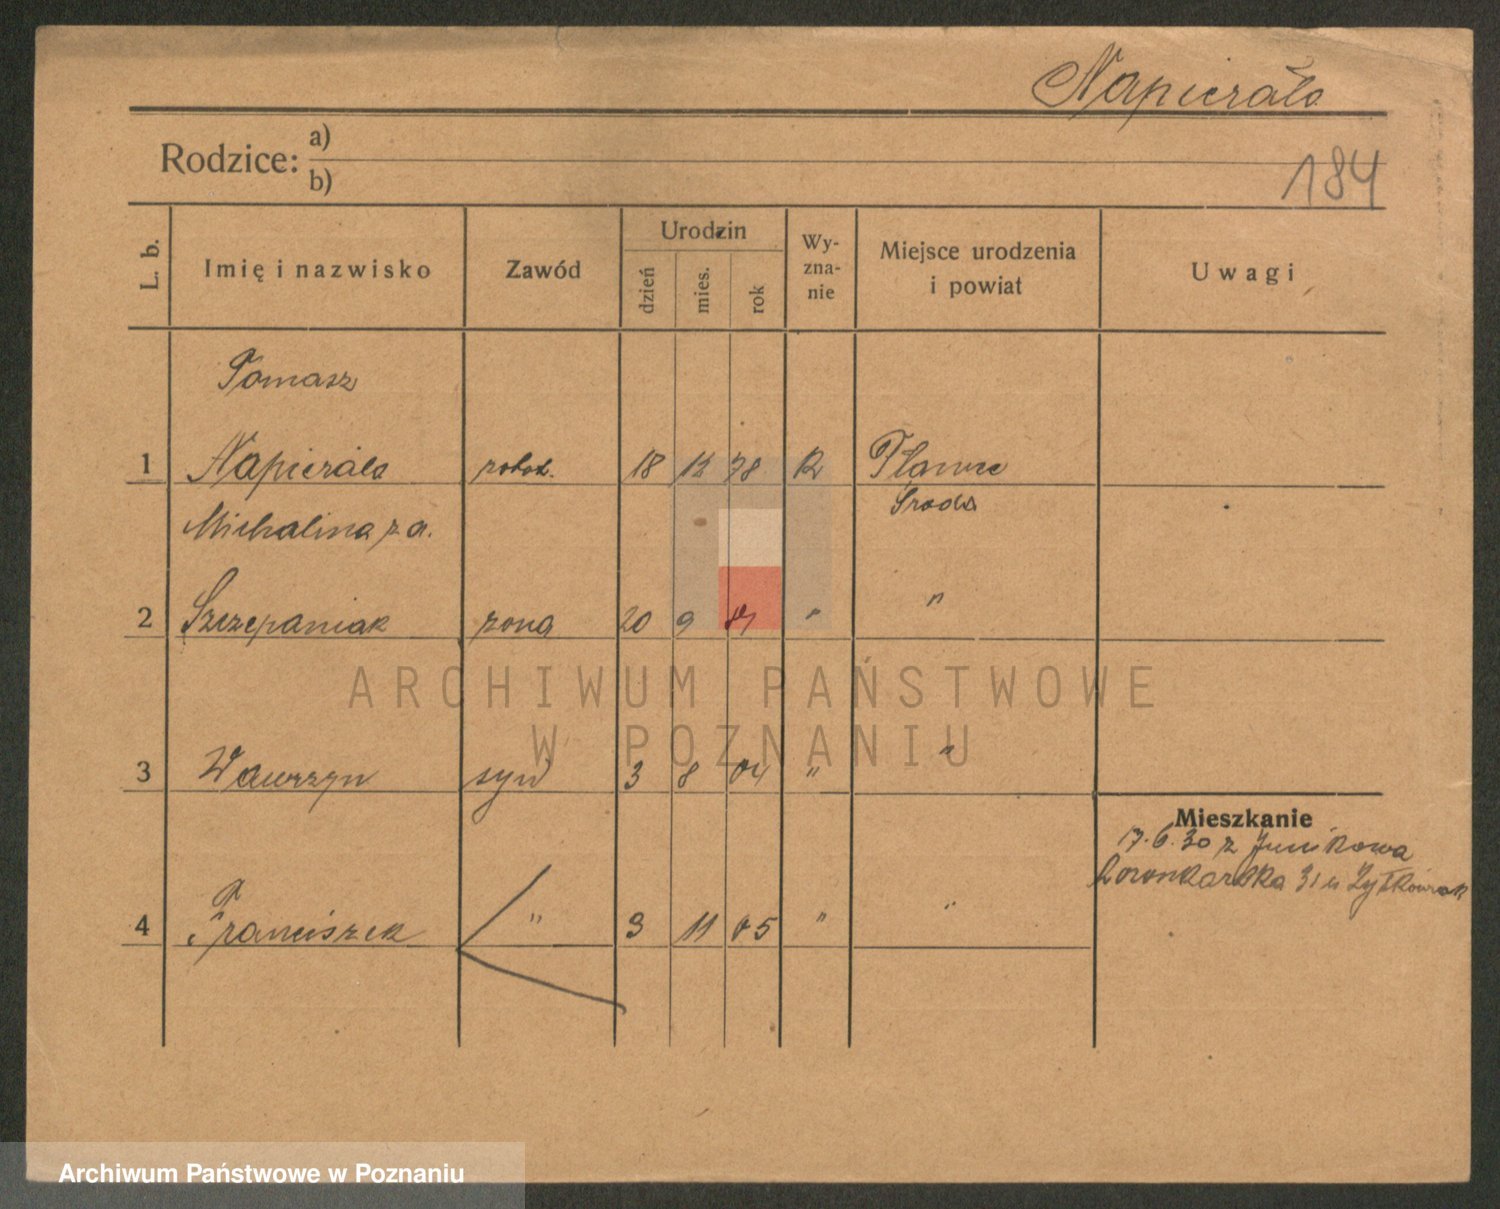 Napierała
Rodzice: a)
b)
184
L. b. Imię i nazwisko Zawód Urodzin dzień mies. rok Wy-zna-nie Miejsce urodzenia i powiat Uwagi
Tomasz
1 Napierała robot. 18 12 78 R Pławce
Środa
Michalina z d.
2 Szczepaniak żona 20 9 " "
3 Wawrzyn syn 3 8 04 " "
Mieszkanie
17.6.30 z Junikowa
31 u
4 Franciszek " 3 11 05 " "
ARCHIWUM PAŃSTWOWE
W POZNANIU
Archiwum Państwowe w Poznaniu